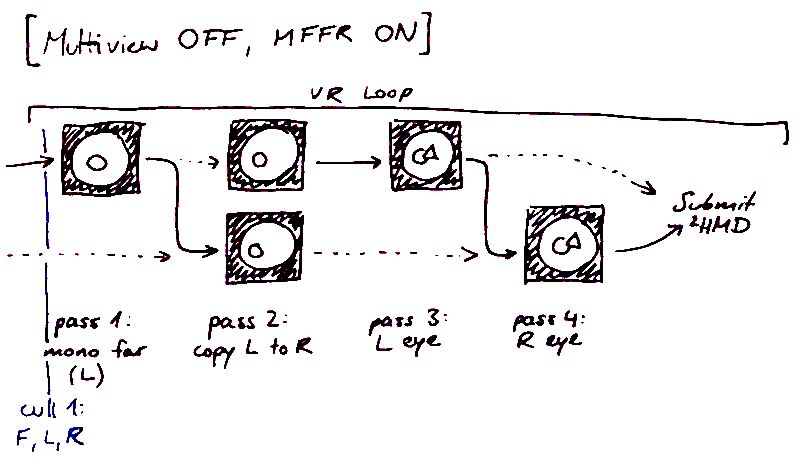 [Multiview OFF, MFFR ON]
VR LOOP
Submit
2HMD
pass 1:
mono far
(L)
pass 2:
copy L to R
pass 3:
L eye
pass 4:
R eye
cull 1:
F, L, R